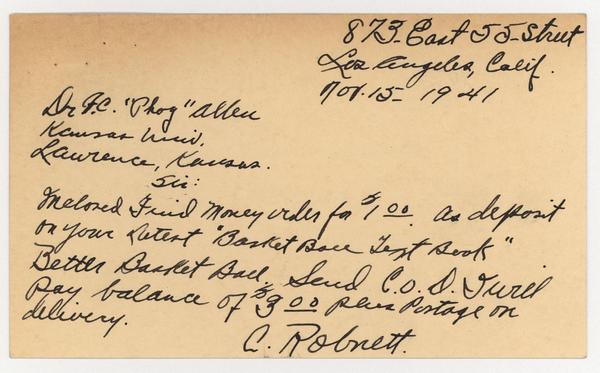 873-East 55-Street
Los Angeles, Calif.
Nov. 15- 1941
Dr F.C. "Phog" Allen
Kansas Univ.
Lawrence, Kansas.
Sir:
Inclosed Find Money order for $1.00. as deposit
on your Latest "Basket Ball Text Book"
Better Basket Ball, Send C.O.D. I will
pay balance of $3.00 plus Postage on
delivery.
C. Robnett.